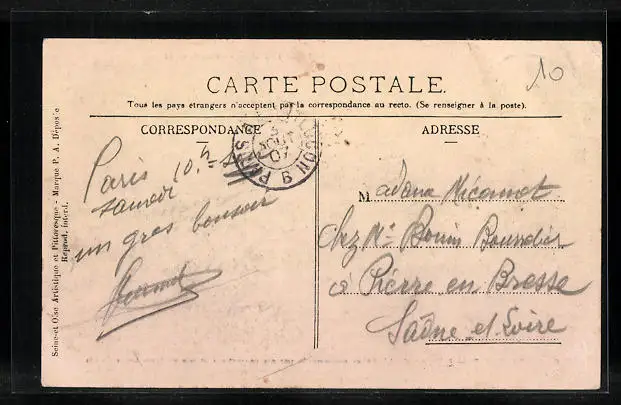 10
CARTE POSTALE.
Tous les pays étrangers n'acceptent pas la correspondance au recto. (Se renseigner à la poste).
CORRESPONDANCE
ADRESSE
Paris
samedi 10.3
un gros bonsoir
Madame Nicomot
chez Mr Bouin
à Pierre en Bresse
Saône et Loire
Seine-et-Oise Artistique et Pittoresque - Marque P. A. Déposée
Reprod. interd.